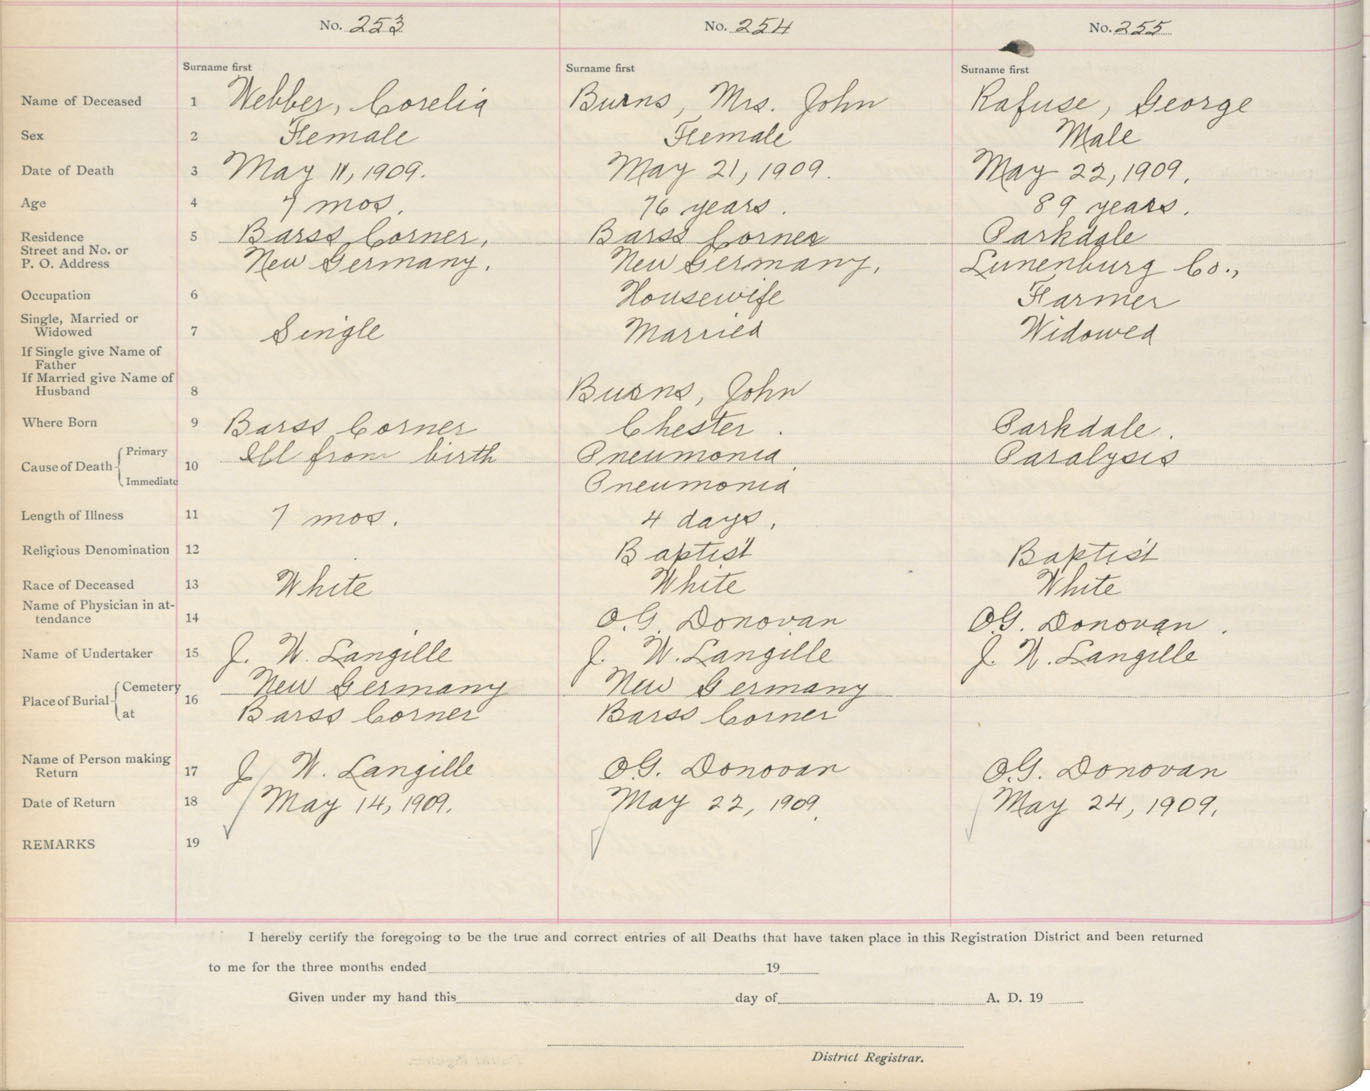 No. 253 No. 254 No. 255
Surname first Surname first Surname first
Name of Deceased 1 Webber, Corelia Burns, Mrs. John Rafuse, George
Sex 2 Female Female Male
Date of Death 3 May 11, 1909. May 21, 1909. May 22, 1909.
Age 4 7 mos. 76 years. 89 years.
Residence 5 Barss Corner, Barss Corner Parkdale
Street and No. or
P. O. Address New Germany. New Germany. Lunenburg Co.,
Occupation 6 Housewife Farmer
Single, Married or
Widowed 7 Single Married Widowed
If Single give Name of
Father
If Married give Name of
Husband 8 Burns, John
Where Born 9 Barss Corner Chester. Parkdale.
Cause of Death Primary 10 Ill from birth Pneumonia Paralysis
Immediate Pneumonia
Length of Illness 11 7 mos. 4 days.
Religious Denomination 12 Baptist Baptist
Race of Deceased 13 White White White
Name of Physician in at-
tendance 14 O.G. Donovan O.G. Donovan.
Name of Undertaker 15 J. W. Langille J. W. Langille J. W. Langille
Place of Burial Cemetery 16 New Germany New Germany
at Barss Corner Barss Corner
Name of Person making
Return 17 J. W. Langille O.G. Donovan O.G. Donovan
Date of Return 18 May 14, 1909. May 22, 1909. May 24, 1909.
REMARKS 19
I hereby certify the foregoing to be the true and correct entries of all Deaths that have taken place in this Registration District and been returned
to me for the three months ended 19
Given under my hand this day of A. D. 19
District Registrar.